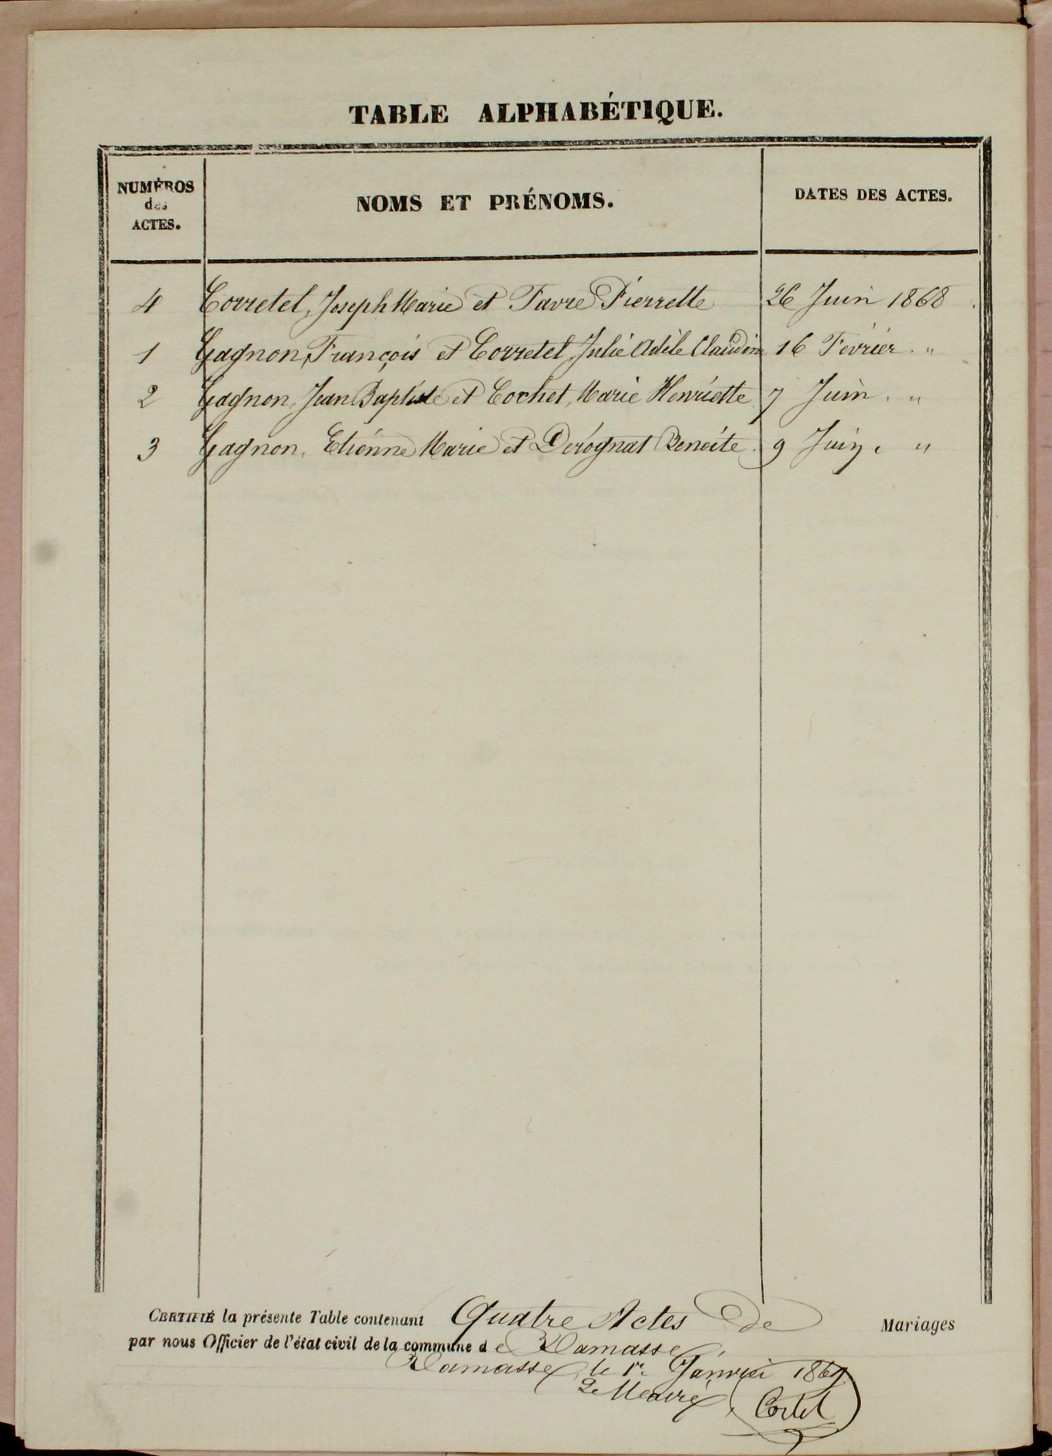 TABLE ALPHABÉTIQUE.
NUMÉROS
des
ACTES.
NOMS ET PRÉNOMS.
DATES DES ACTES.
4 Corretel, Joseph Marie et Favre Pierrette 26 Juin 1868
1 Gagnon, François et Corretel Julie Adèle Claudine 16 Février "
2 Gagnon, Jean Baptiste et Cochet, Marie Henriette 7 Juin. "
3 Gagnon, Etiénne Marie et Derognat Benoite. 9 Juin. "
CERTIFIÉ la présente Table contenant Quatre Actes de Mariages
par nous Officier de l'état civil de la commune de Ramasse
Ramasse, le 1r Janvier 1869
Le Maire,